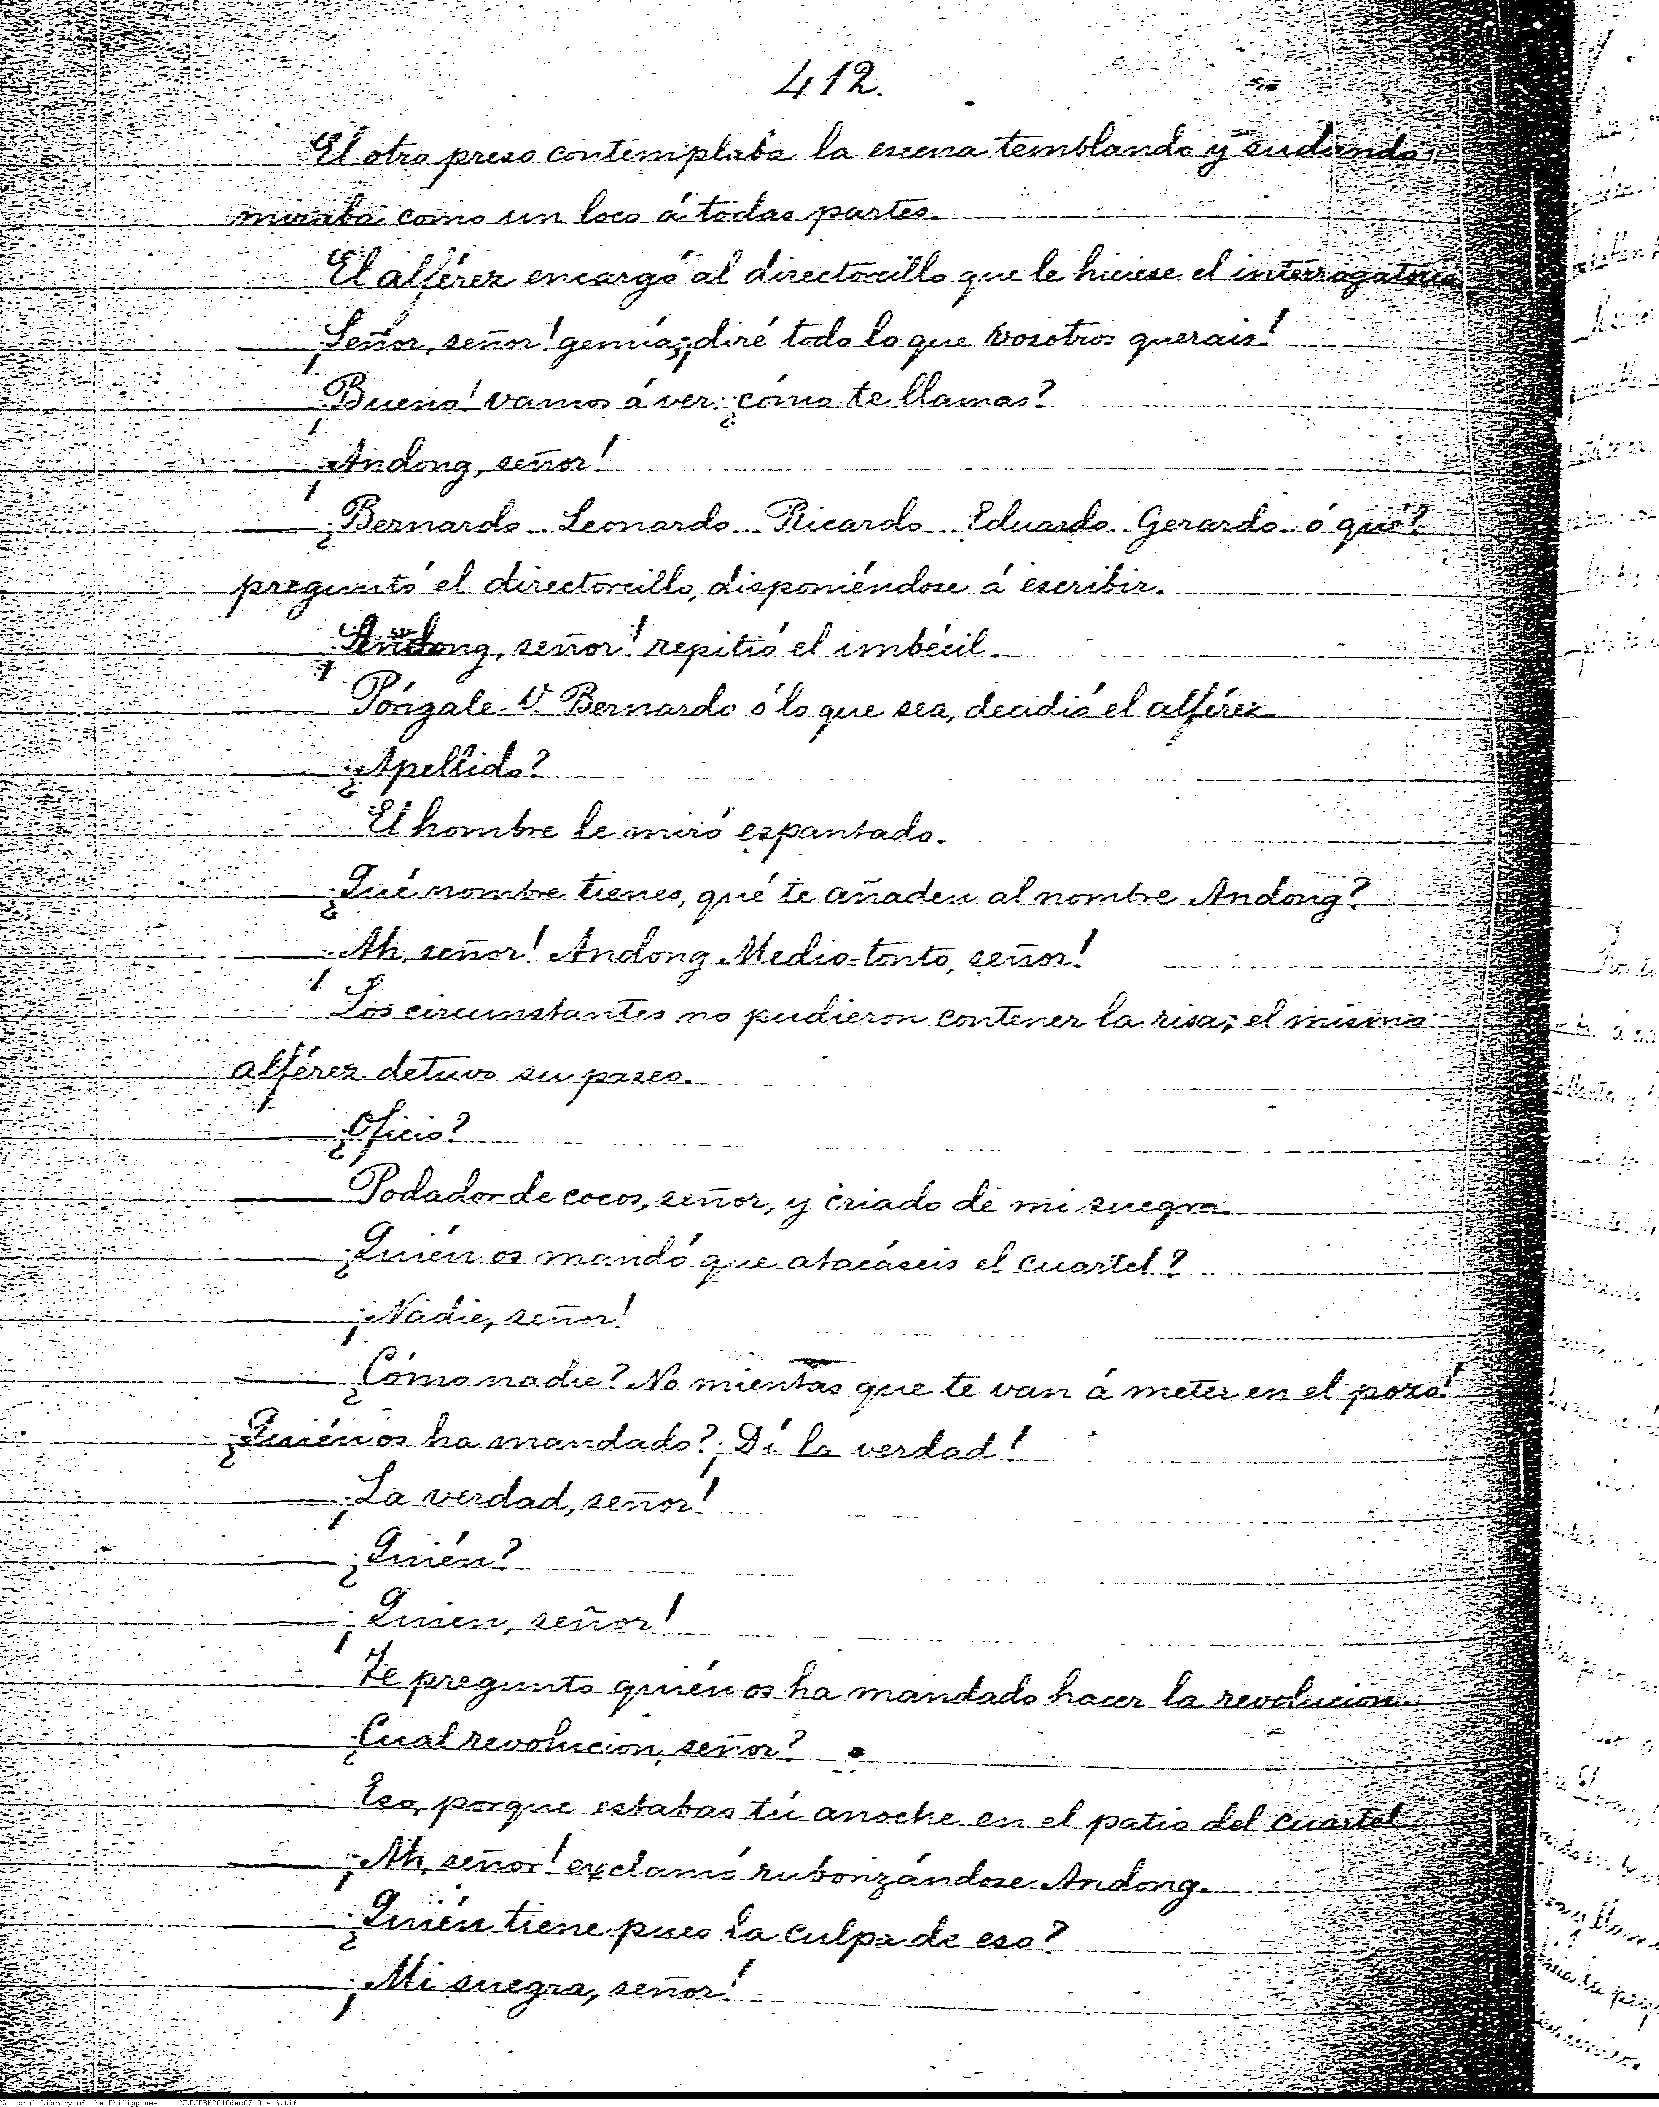 412.
El otro preso contemplaba la escena temblando y sudando;
miraba como un loco á todas partes.
El alférez encargó al directorcillo que le hiciese el interrogatorio
— ¡Señor, señor! gemía; ¡diré todo lo que vosotros querais!
— ¡Bueno! vamos á ver; ¿cómo te llamas?
— ¡Andong, señor!
— ¿Bernardo.. Leonardo.. Ricardo.. Eduardo.. Gerardo.. ó qué?
preguntó el directorcillo, disponiéndose á escribir.
— ¡Andong, señor! repitió el imbécil.
— Póngale V. Bernardo ó lo que sea, decidió el alférez
— ¿Apellido?
El hombre le miró espantado.
— ¿Qué nombre tienes, qué te añaden al nombre Andong?
— ¡Ah, señor! Andong Medio-tonto, señor!
Los circunstantes no pudieron contener la risa; el mismo
alférez detuvo su paseo.
— ¿Oficio?
— Podador de cocos, señor, y criado de mi suegra
— ¿Quién os mandó que atacáseis el cuartel?
— ¡Nadie, señor!
— ¿Cómo nadie? No mientas que te van á meter en el pozo!
¿Quién os ha mandado? ¡Dí la verdad!
— ¡La verdad, señor!
— ¿Quién?
— ¡Quien, señor!
— Te pregunto quién os ha mandado hacer la revolucion.
— ¿Cual revolucion, señor?
— Eso, porque estabas tú anoche en el patio del cuartel.
— ¡Ah, señor! exclamó ruborizándose Andong.
— ¿Quién tiene pues la culpa de eso?
— ¡Mi suegra, señor!